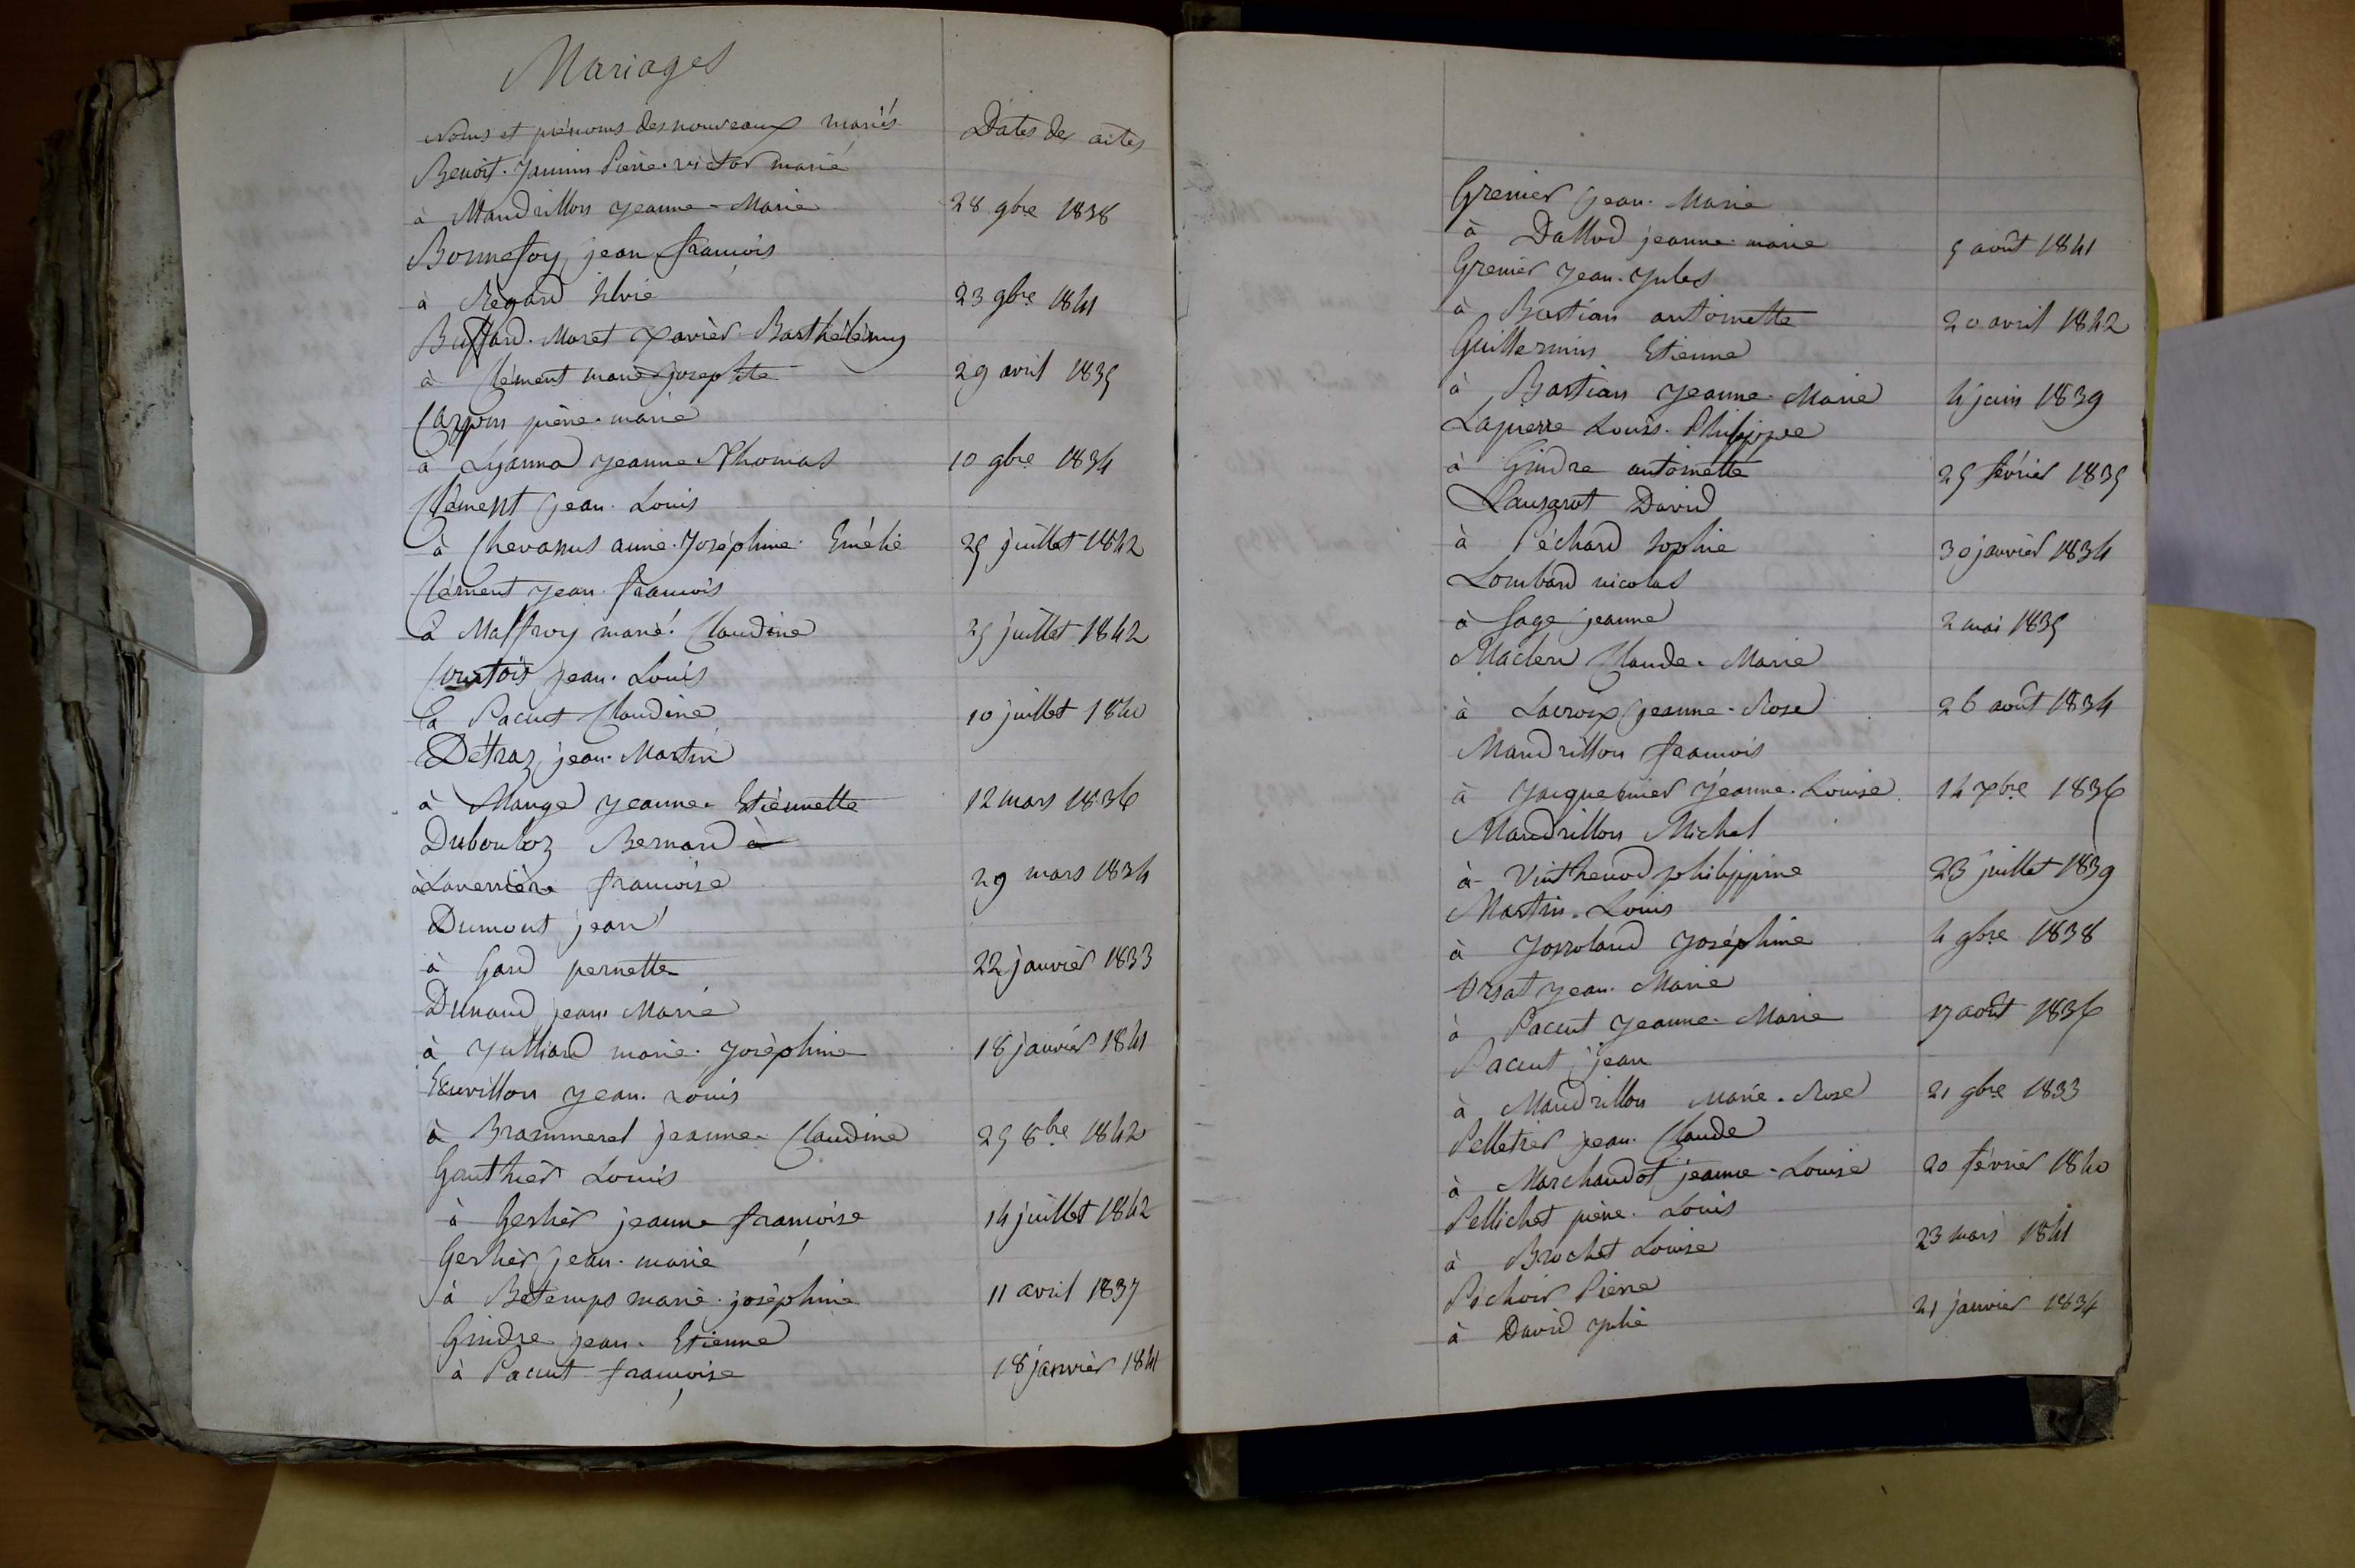 Mariages
Noms et prénoms des nouveaux mariés Dates des actes
Benoit. Jannin Pierre. victor marié
à Mandrillon Jeanne-Marie 28 9bre 1838
Bonnefoy jean françois
à Régard Silvie 23 9bre 1841
Buffard. Moret Xavier Barthélémy
à Clément marie josephte 29 avril 1835
Carpin pierre. marie
à Lyanna Jeanne. Thomas 10 9bre 1834
Clément jean. Louis
à Chevanus anne. Joséphine. Emélie 25 juillet 1842
Clément Jean. françois
à Maffroy marie. Claudine 25 juillet 1842
Courtois jean. Louis
à Pacut Claudine 10 juillet 1840
Détraz jean. Martin
à Monge Jeanne. Etiennette 12 mars 1836
Dubouloz Bernard à
à Laverrière françoise 29 mars 1834
Dumont jean
à Gard pernette 22 janvier 1833
Dunand jean Marie
à Julliard marie. Joséphine 18 janvier 1841
Euvillon Jean. Louis
à Brammerel jeanne. Claudine 25 8bre 1842
Gauthier Louis
à Gerher jeanne françoise 14 juillet 1842
Gerher jean. marie
à Betemps marie. joséphine 11 avril 1837
Gindre jean. Etienne
à Pacut françoise 18 janvier 1841
Grenier jean. Marie
à Dallod jeanne. marie 5 août 1841
Grenier Jean. Jules
à Bastian antoinette 20 avril 1842
Guillermin Etienne
à Bastian Jeanne. Marie 4 juin 1839
Lapierre Louis. Philippe
à Gindre antoinette 25 février 1835
Lausarot David
à Péchard Sophie 30 janvier 1834
Lombard nicolas
à Sage jeanne 2 mai 1835
Maclen Claude. Marie
à Lacroix jeanne. Rose 26 août 1834
Mandrillon françois
à Jacquemier Jeanne. Louise 14 7bre 1836
Mandrillon Michel
à Vinthenod philippine 23 juillet 1839
Martin. Louis
à Josroland Joséphine 4 9bre 1838
Orsat Jean. Marie
à Pacut Jeanne. Marie 17 août 1836
Pacut jean
à Mandrillon Marie. Rose 21 9bre 1833
Pelletier jean. Claude
à Marchandot jeanne. Louise 20 février 1840
Pellichet pierre. Louis
à Brochet Louise 23 mars 1841
Pichoir Pierre
à David Julie 21 janvier 1834